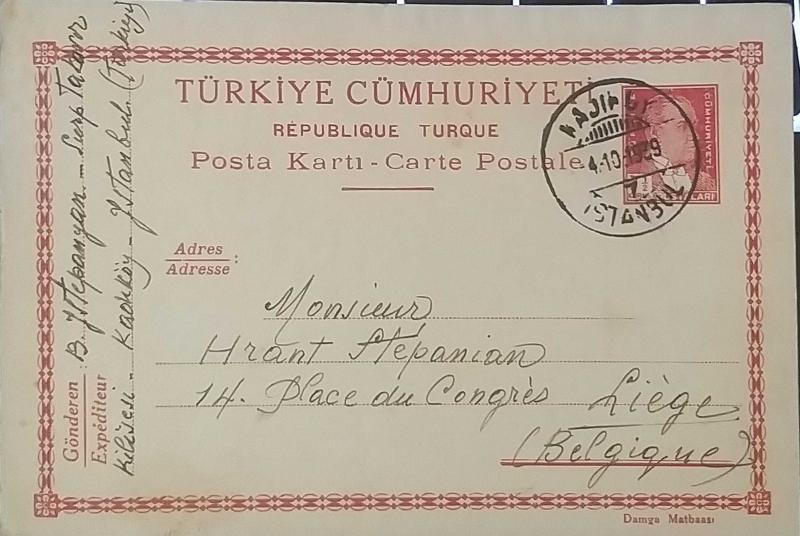 TÜRKİYE CÜMHURİYETİ
RÉPUBLIQUE TURQUE
Posta Kartı - Carte Postale
KADIKÖY
4-10-1939
7
İSTANBUL
CÜMHURİYETİ
Adres
Adresse :
Monsieur
Hrant Stépanian
14. Place du Congrès Liège
(Belgique)
Gönderen
Expéditeur :
B. İstepanyan - Surp Takavor
Kilisesi - Kadıköy - İstanbul (Türkiye)
Damga Matbaası